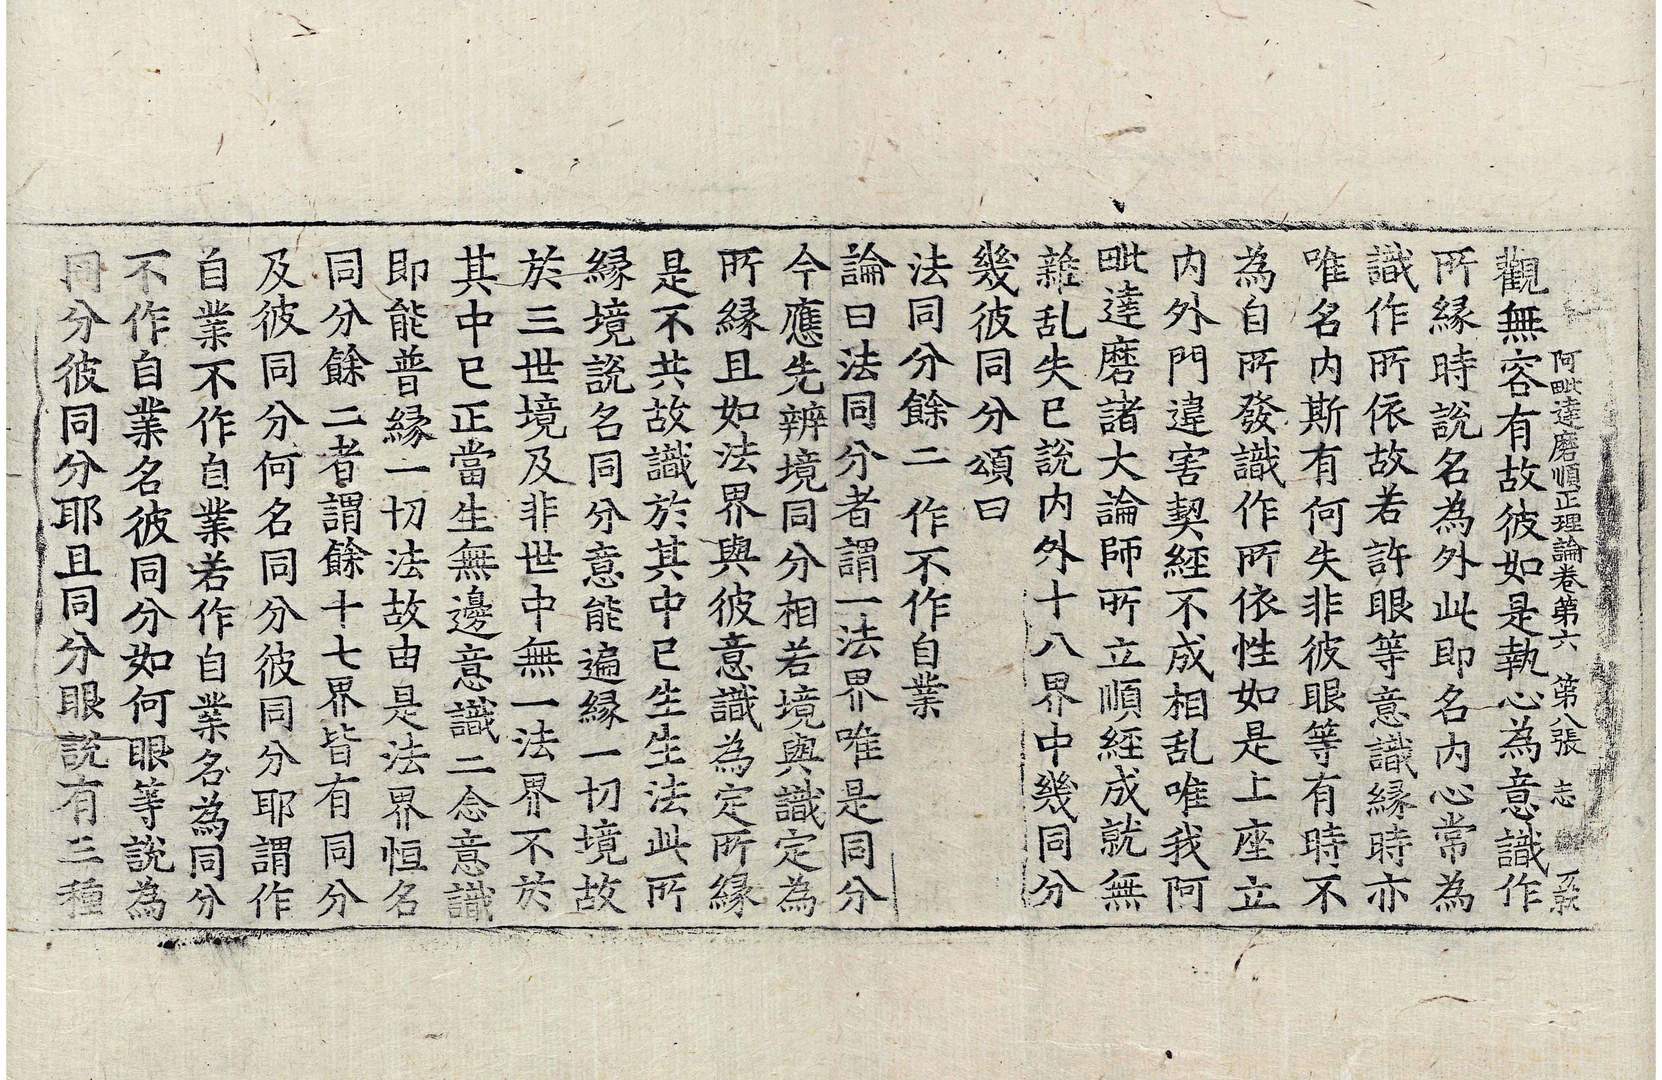 阿毗達磨順正理論卷第六　第八張　志
觀無容有故彼如是執心為意識作
所緣時說名為外此即名內心常為
識作所依故若許眼等意識緣時亦
唯名內斯有何失非彼眼等有時不
為自所發識作所依性如是上座立
內外門違害契經不成相乱唯我阿
毗達磨諸大論師所立順經成就無
雜乱失已說內外十八界中幾同分
幾彼同分頌曰
法同分餘二　作不作自業
論曰法同分者謂一法界唯是同分
今應先辨境同分相若境與識定為
所緣且如法界與彼意識為定所緣
是不共故識於其中已生生法此所
緣境說名同分意能遍緣一切境故
於三世境及非世中無一法界不於
其中已正當生無邊意識二念意識
即能普緣一切法故由是法界恒名
同分餘二者謂餘十七界皆有同分
及彼同分何名同分彼同分耶謂作
自業不作自業若作自業名為同分
不作自業名彼同分如何眼等說為
同分彼同分耶且同分眼說有三種